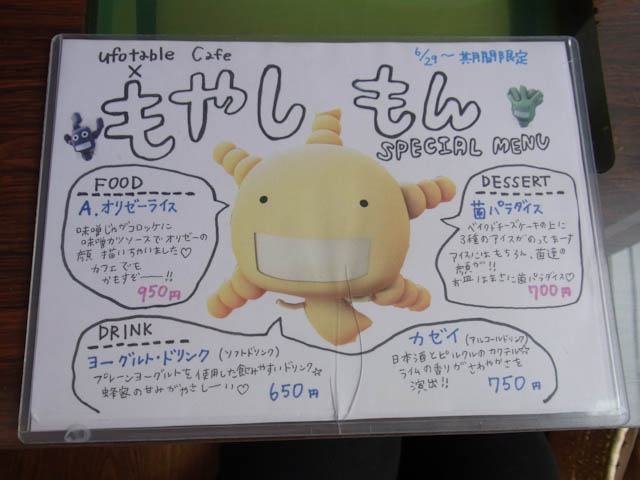 ufotable Cafe
×
もやしもん
6/29～ 期間限定
SPECIAL MENU
FOOD
A.オリゼーライス
味噌じゃがコロッケに
味噌カツソースでオリゼーの
顔 描いちゃいました♡
カフェでも
かもすぞ――!!
950円
DESSERT
菌パラダイス
ベイクドチーズケーキの上に
3種のアイスがのってます
アイスにはもちろん、菌達の
顔が!!
お皿はまさに菌パラダイス♡
700円
DRINK
ヨーグルト・ドリンク (ソフトドリンク)
プレーンヨーグルトを使用した飲みやすいドリンク☆
蜂蜜の甘みがやさしーい♡
650円
カゼイ (アルコールドリンク)
日本酒とピルクルのカクテル☆
ライムの香りがさわやかさを
演出!!
750円